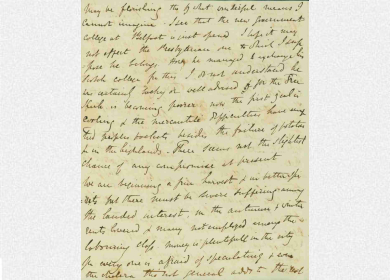 may be flourishing tho by what wonderful means I
cannot imagine. I see that the new government
college at Belfast is not opened I hope it may
not affect the Presbyterian one to which I sup
pose he belongs. how he managed to exchange his
Scotch college for this I do not understand
in certainly lucky or well advised for the Free
Kirk is becoming poorer now the first zeal is
cooling & the mercantile difficulties have
peoples pockets besides the failure of potatoes
in the highlands. There seems not the slightest
chance of any compromise at present
We are beginning a fine harvest & in better
but there must be severe suffering among
the landed interest in the autumn & winter
rents lowered & many not employed among the
labouring class. money is plentiful in the city
for every one is afraid of speculating &
the cholera tho not general adds to the